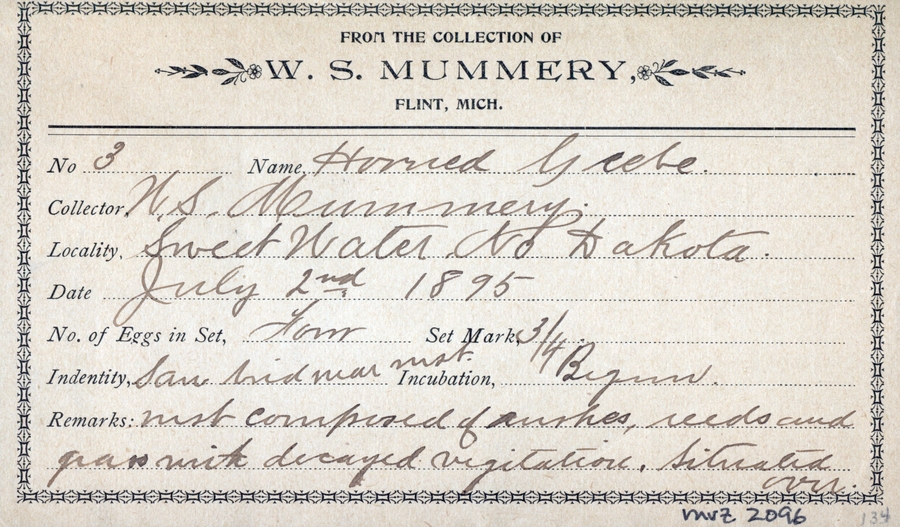 FROM THE COLLECTION OF
W. S. MUMMERY,
FLINT, MICH.
No 3 Name, Horned Grebe.
Collector, W. S. Mummery.
Locality, Sweet Water No Dakota.
Date July 2nd 1895
No. of Eggs in Set, Four Set Mark, 3/4
Indentity, Saw bird near nest. Incubation, Begun.
Remarks: nest composed of rushes, reeds and
grass with decayed vegitation. Situated
over.
mvz 2096 134